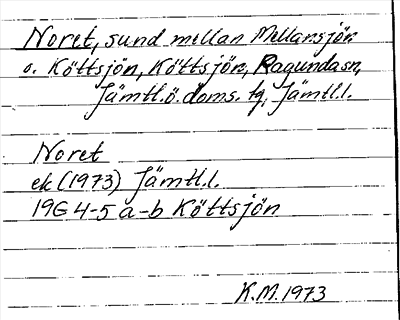 Noret, sund mellan Mellansjön
o. Köttsjön, Köttsjön, Ragundasn,
Jämtl.ö.doms. tg, Jämtl.l.
Noret
ek (1973) Jämtl.l.
19G 4-5 a-b Köttsjön
K.M. 1973